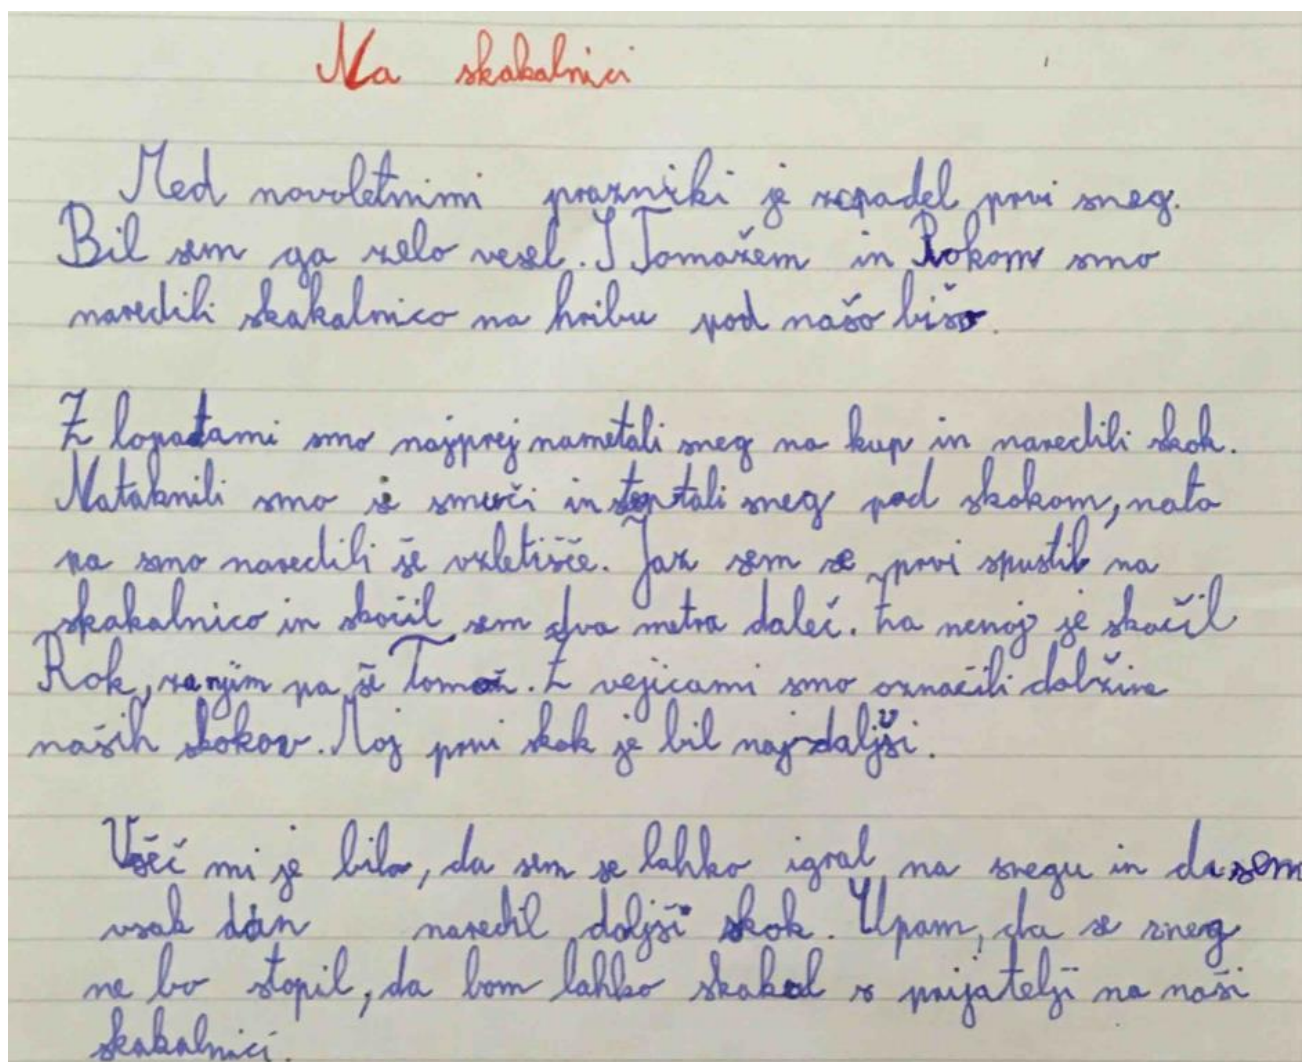 Na skakalnici
Med novoletnimi prazniki je zapadel prvi sneg.
Bil sem ga zelo vesel. S Tomažem in Rokom smo
naredili skakalnico na hribu pod našo hišo.
Z lopatami smo najprej nametali sneg na kup in naredili skok.
Nataknili smo si smuči in steptali sneg pod skokom, nato
pa smo naredili še vzletišče. Jaz sem se prvi spustil na
skakalnico in skočil sem dva metra daleč. Za menoj je skočil
Rok, za njim pa še Tomaž. Z vejicami smo označili dolžine
naših skokov. Moj prvi skok je bil najdaljši.
Všeč mi je bilo, da sem se lahko igral na snegu in da sem
vsak dan naredil daljši skok. Upam, da se sneg
ne bo stopil, da bom lahko skakal s prijatelji na naši
skakalnici.